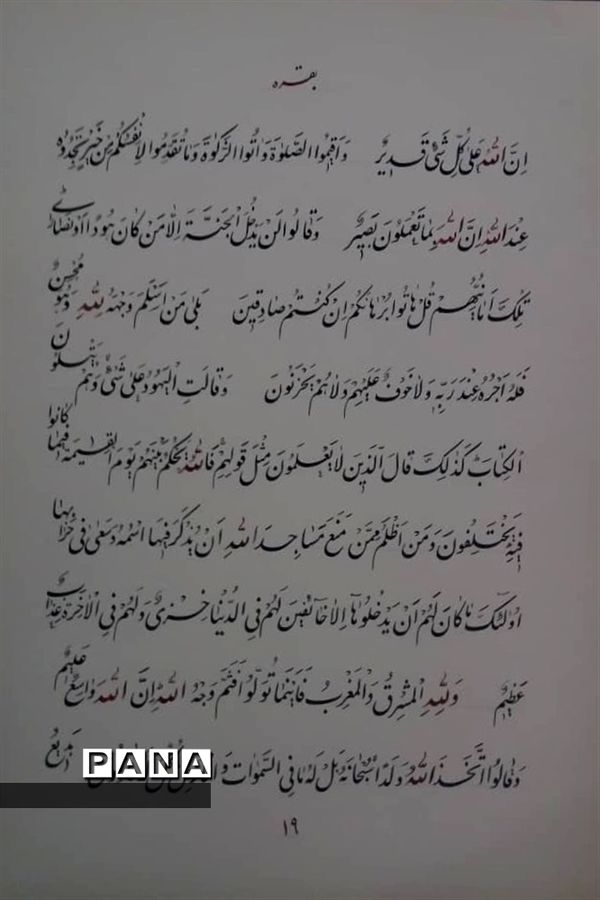 بقره
اِنَّ اللهَ عَلیٰ کُلِّ شَیْءٍ قَدیرٌ وَاَقیمُوا الصَّلوٰةَ وَاٰتُوا الزَّکوٰةَ وَمٰا تُقَدِّمُوا لِاَنْفُسِکُمْ مِنْ خَیْرٍ تَجِدُوهُ
عِنْدَ اللهِ اِنَّ اللهَ بِمٰا تَعْمَلُونَ بَصیرٌ وَقٰالُوا لَنْ یَدْخُلَ الْجَنَّةَ اِلّٰا مَنْ کٰانَ هُودًا اَوْ نَصٰاریٰ
تِلْکَ اَمٰانِیُّهُمْ قُلْ هٰاتُوا بُرْهٰانَکُمْ اِنْ کُنْتُمْ صٰادِقینَ بَلیٰ مَنْ اَسْلَمَ وَجْهَهُ لِلّٰهِ وَهُوَ مُحْسِنٌ
فَلَهُ اَجْرُهُ عِنْدَ رَبِّهِ وَلٰا خَوْفٌ عَلَیْهِمْ وَلٰا هُمْ یَحْزَنُونَ وَقٰالَتِ الْیَهُودُ عَلیٰ شَیْءٍ وَهُمْ یَتْلُونَ
الْکِتٰابَ کَذٰلِکَ قٰالَ الَّذینَ لٰا یَعْلَمُونَ مِثْلَ قَوْلِهِمْ فَاللهُ یَحْکُمُ بَیْنَهُمْ یَوْمَ الْقِیٰمَةِ فیمٰا کٰانُوا
فیهِ یَخْتَلِفُونَ وَمَنْ اَظْلَمُ مِمَّنْ مَنَعَ مَسٰاجِدَ اللهِ اَنْ یُذْکَرَ فیهَا اسْمُهُ وَسَعیٰ فی خَرٰابِهٰا
اُولٰئِکَ مٰا کٰانَ لَهُمْ اَنْ یَدْخُلُوهٰا اِلّٰا خٰائِفینَ لَهُمْ فِی الدُّنْیٰا خِزْیٌ وَلَهُمْ فِی الْاٰخِرَةِ عَذٰابٌ
عَظیمٌ وَلِلّٰهِ الْمَشْرِقُ وَالْمَغْرِبُ فَاَیْنَمٰا تُوَلُّوا فَثَمَّ وَجْهُ اللهِ اِنَّ اللهَ وٰاسِعٌ عَلیمٌ
وَقٰالُوا اتَّخَذَ اللهُ وَلَدًا سُبْحٰانَهُ بَلْ لَهُ مٰا فِی السَّمٰوٰاتِ بَدیعُ
PANA
۱۹